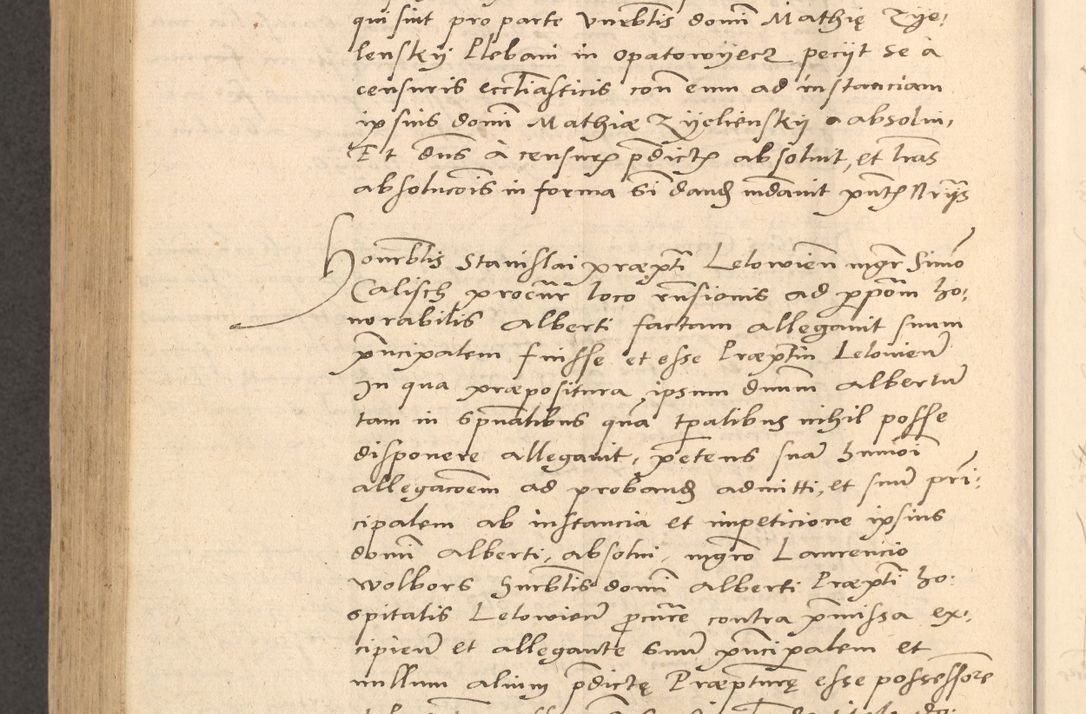 qui sint pro parte vnerbtis domi Mathię Zye:
lenskij Plebani in Opatowyecz pecijt se à
censuris eccliasticis con eum ad instanciam
ipsius domi Mathiæ Zyelienskij absolui,
Et dns à censuris pdictis absoluit, et lras
absolucois in forma si dand mdauit pntes Nrijs
Honrbtis Stanislai præpti Lelowien mgr Simo
Calisch procur loco rnsionis ad ppom ho:
norabilis Alberti factam allegauit suum
pncipalem fuisse et esse Præptm Lelouien
In qua præpositura ipsum dnum Albertu
tam in spualibus qua tpalibus nihil posse
disponere allegauit, petens sua humoi
allegacoem ad proband admitti, et suu prni:
cipalem ab instancia et impeticione ipsius
domi Alberti, absolui, mgro Laurencio
Wolbors hnrbtis domi Alberti Præpti ho:
spitalis Lelouien pcure contra pmissa ex:
cipien et allegante suu pncipalem et
nullum alium pdictę Præpturę esse possessore